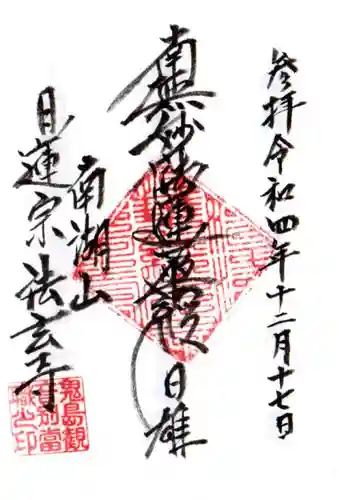 参拝令和四年十二月十七日
南無妙法蓮華経
日雄
南湖山
日蓮宗法玄寺